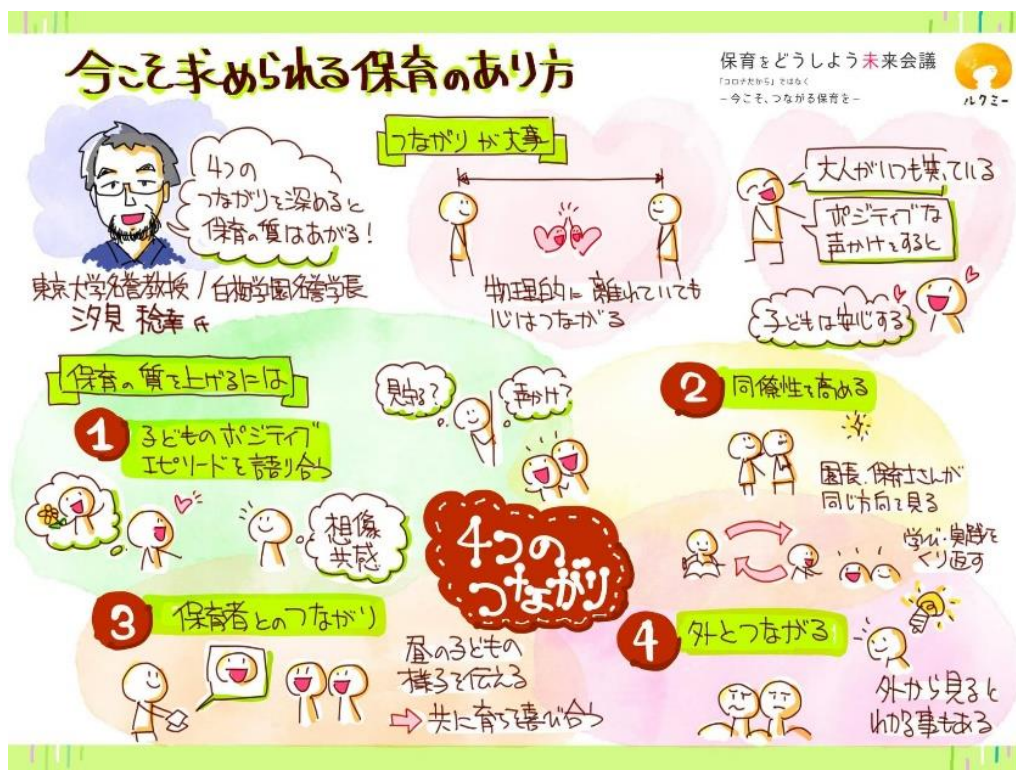 今こそ求められる保育のあり方
保育をどうしよう未来会議
「コロナだから」ではなく
－今こそ、つながる保育を－
ルクミー
4つの
つながりを深めると
保育の質はあがる!
東京大学名誉教授/白梅学園名誉学長
汐見 稔幸 氏
つながりが大事
物理的に離れていても
心はつながる
大人がいつも笑っている
ポジティブな
声かけをすると
子どもは安心する
保育の質を上げるには
1
子どものポジティブ
エピソードを語り合う
想像
共感
見守る?
声かけ?
4つの
つながり
2
同僚性を高める
園長、保育士さんが
同じ方向を見る
学び・実践を
くり返す
3
保育者とのつながり
昼の子どもの
様子を伝える
⇨共に育ちを喜び合う
4
外とつながる
外から見ると
わかる事もある